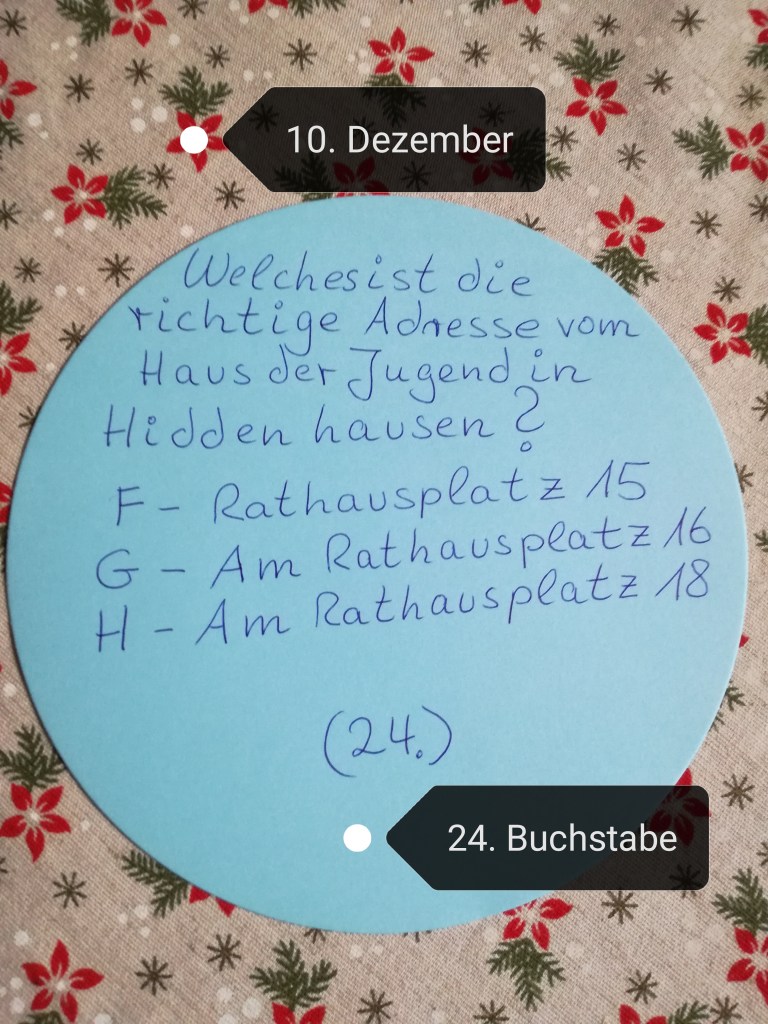 10. Dezember
Welches ist die
richtige Adresse vom
Haus der Jugend in
Hiddenhausen?
F - Rathausplatz 15
G - Am Rathausplatz 16
H - Am Rathausplatz 18
(24.)
24. Buchstabe